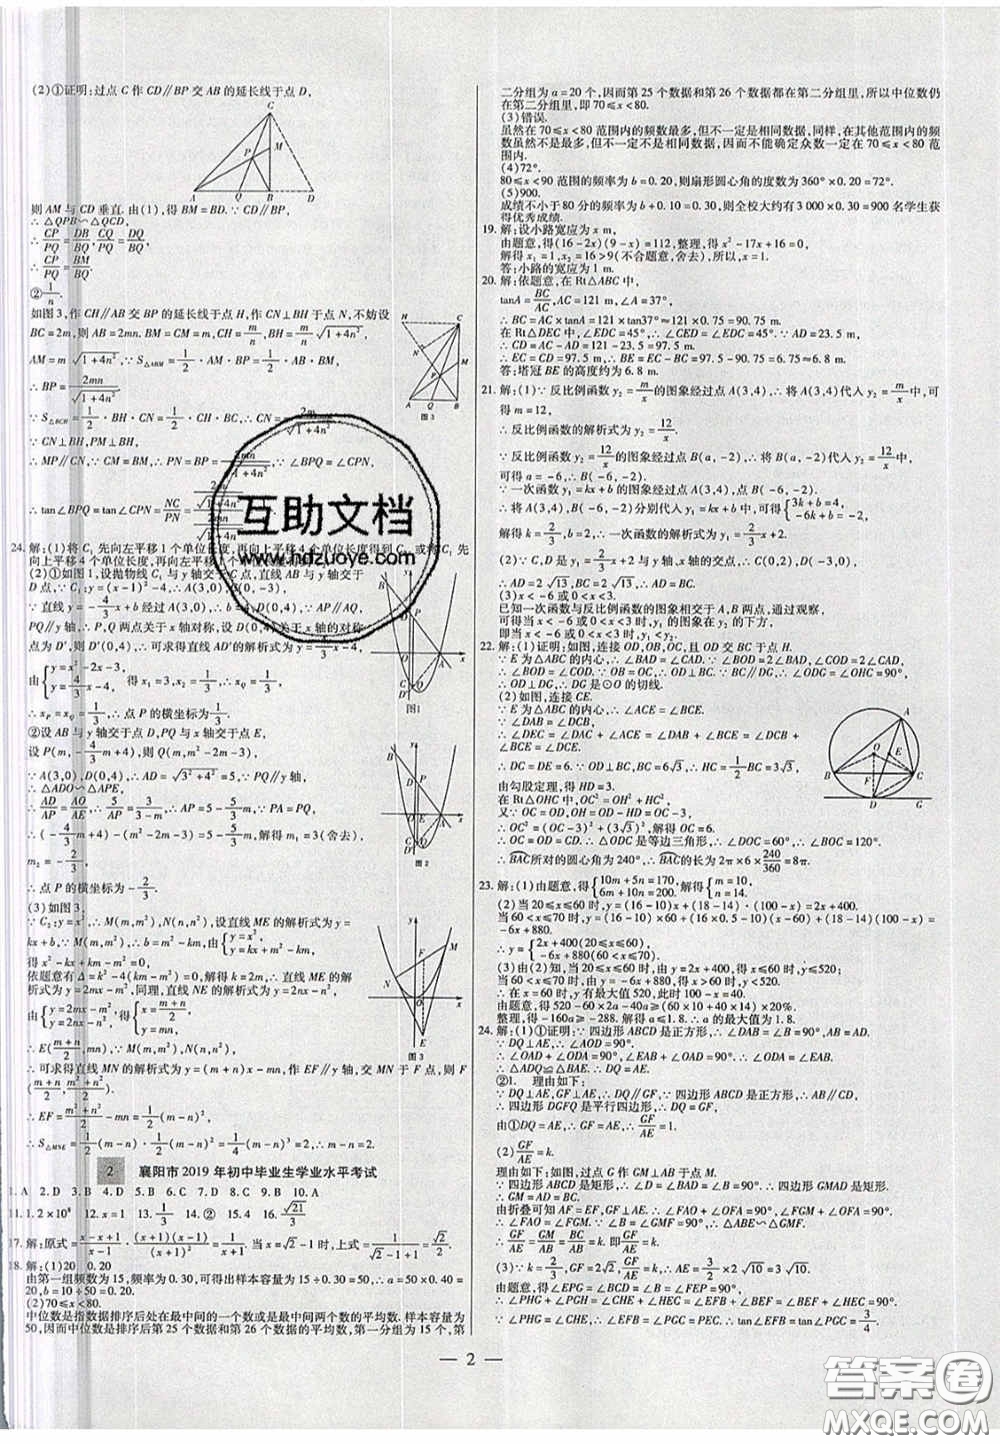 (2)①证明:过点 C 作 CD∥BP 交 AB 的延长线于点 D,
则 AM 与 CD 垂直.由(1),得 BM=BD.∵CD∥BP,
∴△QPB∽△QCD,
∴CP/PQ=DB/BQ,∵CP/PQ=BD/BQ
∴CP/PQ=BM/BQ
②1/n.
如图 3,作 CH∥AB 交 BP 的延长线于点 H,作 CN⊥BH 于点 N,不妨设
BC=2m,则 AB=2mn.BM=CM=m,CH=m/n,BH=m/n√1+4n²
AM=m√1+4n².∵S△ABM=1/2·AM·BP=1/2·AB·BM,
∴BP=2mn/√1+4n²
∵S△BCH=1/2·BH·CN=1/2·CH·BC,∴CN=2m/√1+4n²
∵CN⊥BH,PM⊥BH,
∴MP∥CN,CM=BM,∴PN=BP=2mn/√1+4n².∵∠BPQ=∠CPN,
24.解:(1)将 C₁ 先向左平移 1 个单位长度,再向上平移 4 个单位长度得到 C₂ 或将 C₁ 先
向上平移 4 个单位长度,再向左平移 1 个单位长度得到 C₂.
(2)①如图 1,设抛物线 C₁ 与 y 轴交于 C 点,直线 AB 与 y 轴交于
D 点,∵C₁:y=(x-1)²-4,∴A(3,0),C(0,-3).
∵直线 y=-4/3x+b 经过 A(3,0),∴b=4,∴D(0,4),∵AP∥AQ,
PQ∥y 轴,∴P,Q 两点关于 x 轴对称,设 D(0,4)关于 x 轴的对称
点为 D′,则 D′(0,-4),∴可求得直线 AD′的解析式为 y=4/3x-4,
由{y=x²-2x-3, y=4/3x-4 得 x₁=3,x₂=1/3,∴x_Q=1/3,
∴x_P=x_Q=1/3,∴点 P 的横坐标为1/3.
②设 AB 与 y 轴交于点 D,PQ 与 x 轴交于点 E,
设 P(m,-4/3m+4),则 Q(m,m²-2m-3),
∵A(3,0),D(0,4),∴AD=√3²+4²=5.∵PQ∥y 轴,
∴△ADO∽△APE,
∴AD/AP=AO/AE,∴5/AP=3/3-m,∴AP=5-5/3m,∵PA=PQ,
∴(-4/3m+4)-(m²-2m-3)=5-5/3m,解得 m₁=3(舍去),
m₂=-2/3.
∴点 P 的横坐标为-2/3.
(3)如图 3,
∵C₂:y=x²,∴M(m,m²),N(n,n²),设直线 ME 的解析式为 y=
kx+b,∵M(m,m²),∴b=m²-km,由{y=x², y=kx+m²-km,
得 x²-kx+km-m²=0.
依题意有 Δ=k²-4(km-m²)=0,∴k=2m,∴直线 ME 的解
析式为 y=2mx-m²,同理,直线 NE 的解析式为 y=2nx-n²,
由{y=2mx-m², y=2nx-n² 得{x=m+n/2, y=mn.
∴E(m+n/2,mn),
∴可求得直线 MN 的解析式为 y=(m+n)x-mn,作 EF∥y 轴,交 MN 于 F 点,则 F
∴S△MNE=1/2(m-n)·1/2(m-n)²=1/4(m-n)³=2,∴m-n=2.
图 3
图1
图 2
图 3
2 襄阳市 2019 年初中毕业生学业水平考试
1. A 2. D 3. B 4. D 5. C 6. C 7. D 8. B 9. B 10. A
11. 1.2×10⁸ 12. x=1 13. 1/3 14. ② 15. 3 16. √21/3
17.解:原式=x-1/x+1÷(x+1)(x-1)/(x+1)²=1/x+1.当 x=√2-1 时,上式=1/√2-1+1=√2/2.
18.解:(1)20 0.20
由第一组频数为 15,频率为 0.30,可得出样本容量为 15÷0.30=50,∴a=50×0.40=
20,b=10÷50=0.20.
(2)70≤x<80.
中位数是指数据排序后处在最中间的一个数或是最中间两个数的平均数.样本容量为
50,因而中位数是排序后第 25 个数据和第 26 个数据的平均数,第一分组为 15 个,第
二分组为 a=20 个,因而第 25 个数据和第 26 个数据都在第二分组里,所以中位数仍
在第二分组里,即 70≤x<80.
(3)错误.
虽然在 70≤x<80 范围内的频数最多,但不一定是相同数据,同样,在其他范围内的频
数虽然不是最多,但不一定不是相同数据,因而不能确定众数一定在 70≤x<80 范
围内.
(4)72°.
80≤x<90 范围的频率为 b=0.20,则扇形圆心角的度数为 360°×0.20=72°.
(5)900.
成绩不小于 80 分的频率为 b+0.10=0.30,则全校大约有 3 000×0.30=900 名学生获
得优秀成绩.
19.解:设小路宽应为 x m,
由题意,得(16-2x)(9-x)=112,整理,得 x²-17x+16=0,
解得 x₁=1,x₂=16>9(不合题意,舍去),所以,x=1.
答:小路的宽应为 1 m.
20.解:依题意,在 Rt△ABC 中,
tanA=BC/AC,AC=121 m,∠A=37°,
∴BC=AC×tanA=121×tan37°≈121×0.75=90.75.
在 Rt△DEC 中,∠EDC=45°,∴∠CED=∠EDC=45°.∵AD=23.5 m,
∴DC=AC-AD=121-23.5=97.5.
∴EC=CD=97.5 m,∴BE=EC-BC=97.5-90.75=6.75≈6.8 m.
答:塔冠 BE 的高度约为 6.8 m.
21.解:(1)∵反比例函数 y₂=m/x的图象经过点 A(3,4),∴将 A(3,4)代入 y₂=m/x中,可
得 m=12,
∴反比例函数的解析式为 y₂=12/x.
∵反比例函数 y₂=12/x的图象经过点 B(a,-2),∴将 B(a,-2)代入 y₂=12/x中,
可得 a=-6,∴B(-6,-2).
∵一次函数 y₁=kx+b 的图象经过点 A(3,4),点 B(-6,-2),
∴将 A(3,4),B(-6,-2)分别代入 y₁=kx+b 中,可得{3k+b=4, -6k+b=-2,
解得 k=2/3,b=2,∴一次函数的解析式为 y₁=2/3x+2.
(2)∵C,D 是一次函数 y₁=2/3x+2 与 x 轴,y 轴的交点,∴C(0,2),D(-3,0),
∴AD=2√13,BC=2√13,∴AD=BC.
(3)x<-6 或 0<x<3.
已知一次函数与反比例函数的图象相交于 A,B 两点,通过观察,
可得当 x<-6 或 0<x<3 时,y₁ 的图象在 y₂ 的下方,
即当 x<-6 或 0<x<3 时,y₁<y₂.
22.解:(1)证明:如图,连接 OD,OB,OC,且 OD 交 BC 于点 H.
∵E 为△ABC 的内心,∴∠BAD=∠CAD.∵∠BOD=2∠BAD,∠COD=2∠CAD,
∴∠BOD=∠COD.∵OB=OC,∴OD⊥BC,∵DG∥BC,∴∠ODG=∠OHC=90°,
∴OD⊥DG,∴DG 是⊙O 的切线.
(2)如图,连接 CE.
∵E 为△ABC 的内心,∴∠ACE=∠BCE.
∵∠DAB=∠DCB,
∴∠DEC=∠DAC+∠ACE=∠DAB+∠BCE=∠DCB+
∠BCE=∠DCE,
∴DC=DE=6.∵OD⊥BC,BC=6√3,∴HC=1/2BC=3√3,
由勾股定理,得 HD=3.
在 Rt△OHC 中,OC²=OH²+HC²,
又∵OC=OD,OH=OD-HD=OC-3,
∴OC²=(OC-3)²+(3√3)²,解得 OC=6.
∴OC=OD=CD.∴△ODC 是等边三角形,∴∠DOC=60°,∴∠BOC=120°.
∴BAC所对的圆心角为 240°,∴BAC的长为 2π×6×240/360=8π.
23.解:(1)由题意,得{10m+5n=170, 6m+10n=200.解得{m=10, n=14.
(2)当 20≤x≤60 时,y=(16-10)x+(18-14)(100-x)=2x+400.
当 60<x≤80 时,y=(16-10)×60+(16×0.5-10)(x-60)+(18-14)(100-x)=
-6x+880.
∴y={2x+400(20≤x≤60), -6x+880(60<x≤80).
(3)由(2)知,当 20≤x≤60 时,由 y=2x+400,得 y≤520;
当 60<x≤80 时,由 y=-6x+880,得 y<520;
∴在 x=60 时,y 有最大值 520,此时 100-x=40.
由题意,得 520-60×2a-40a≥(60×10+40×14)×20%.
整理,得-160a≥-288.解得 a≤1.8.∴a 的最大值为 1.8.
24.解:(1)①证明:∵四边形 ABCD 是正方形,∴AB=DA,∠B=∠DAB=90°.
∵DQ⊥AE,∴∠AOD=90°.
∴∠OAD+∠ODA=90°,∵∠EAB+∠OAD=90°,∴∠EAB=∠ODA.
∴△ABE≌△DAQ,∴AE=DQ.
②1. 理由如下:
∵DQ⊥AE,GF⊥AE,∴DQ∥GF.∵四边形 ABCD 是正方形,∴AB∥CD,
∴四边形 DGFQ 是平行四边形,∴DQ=GF.
由①DQ=AE,∴GF=AE,∴GF/AE=1.
(2)GF/AE=k.
理由如下:如图,过点 G 作 GM⊥AB 于点 M.
∵四边形 ABCD 是矩形,∴四边形 GMAD 是矩形.
∴GM=AD.∴∠D=∠B=∠DAB=90°,
由折叠可知 AF=EF,GF⊥AE,∴∠FAO+∠OFA=90°,∠FGM+∠OFA=90°.
∴∠FAO=∠FGM.∵∠B=∠GMF=90°,∴△ABE∽△GMF.即GF/AE=GM/AB.
∴GF/AE=GM/AB=BC/AB=k.即GF/AE=k.
(3)∵k=2/3,∴GF/AE=2/3,∵GF=2√10,∴AE=3/2×2√10=3√10.
由题意,得∠EPG=∠BCD=∠FEP=∠B=90°.
∴∠PHG+∠PGH=∠CHE+∠PEC=∠EFB+∠BEF=∠BEF+∠PEC=90°,
∵∠PHG=∠CHE,∴∠EFB=∠PGC=∠PEC.∴tan∠EFB=tan∠PGC=3/4.
— 2 —
互助文档
www.hdzuoye.com
答案圈
MXQE.COM